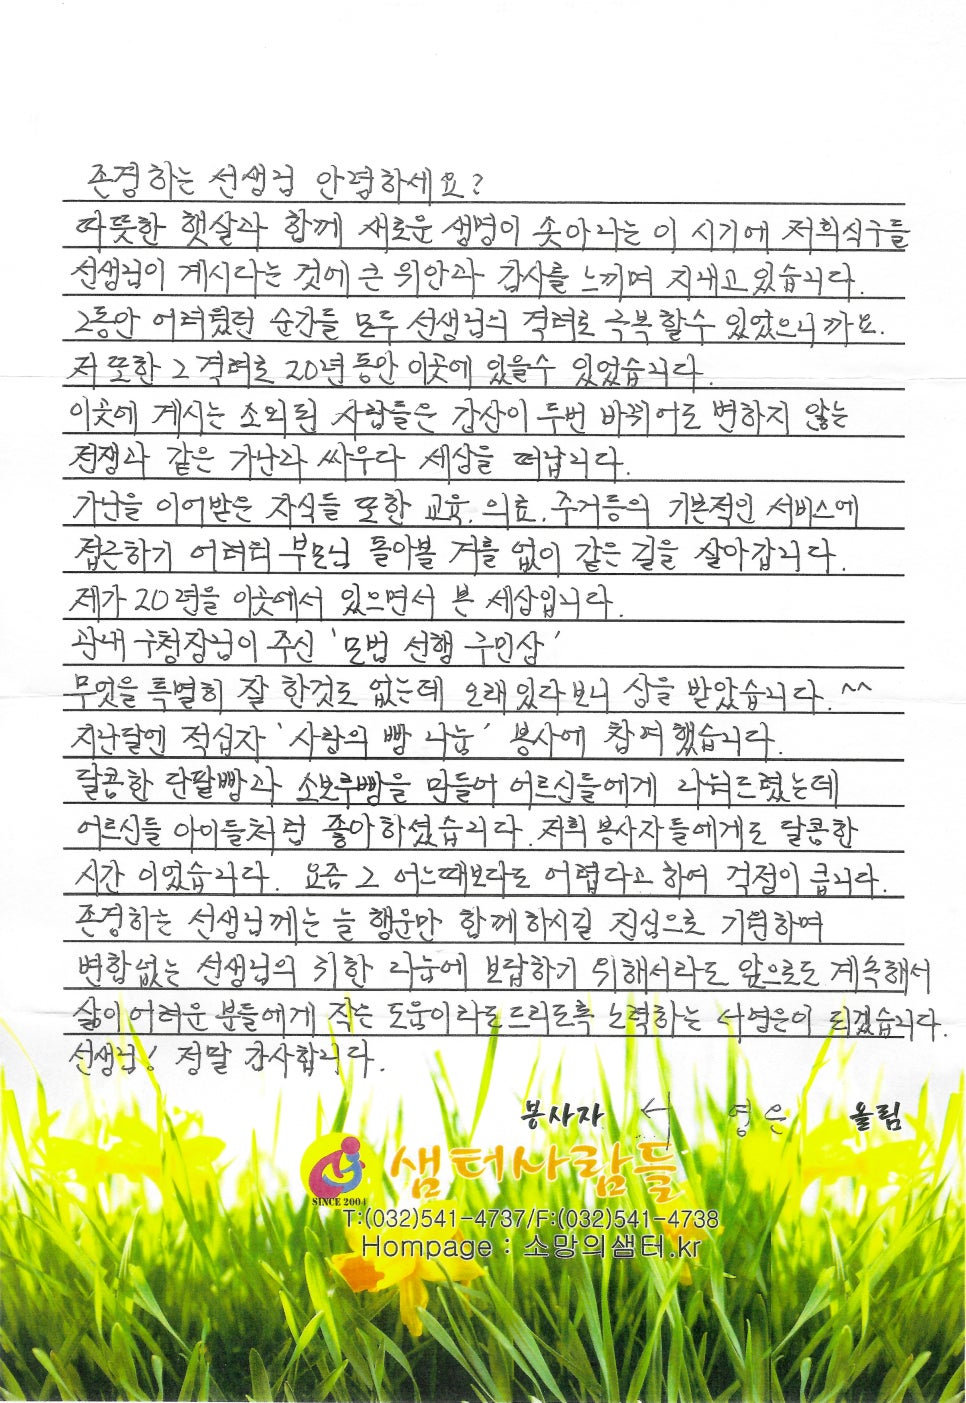 존경하는 선생님 안녕하세요?
따뜻한 햇살과 함께 새로운 생명이 솟아나는 이 시기에 저희식구들
선생님이 계시다는 것에 큰 위안과 감사를 느끼며 지내고 있습니다.
그동안 어려웠던 순간들 모두 선생님의 격려로 극복할수 있었으니까요.
저 또한 그 격려로 20년 동안 이곳에 있을수 있었습니다.
이곳에 계시는 소외된 사람들은 강산이 두번 바뀌어도 변하지 않는
전쟁과 같은 가난과 싸우다 세상을 떠납니다.
가난을 이어받은 자식들 또한 교육, 의료, 주거등의 기본적인 서비스에
접근하기 어려워 부모님 돌아볼 겨를 없이 같은 길을 살아갑니다.
제가 20년을 이곳에서 있으면서 본 세상입니다.
관내 구청장님이 주신 '모범 선행 구민상'
무엇을 특별히 잘 한것도 없는데 오래있다보니 상을 받았습니다. ^^
지난달엔 적십자 '사랑의 빵 나눔' 봉사에 참여했습니다.
달콤한 단팥빵과 소보루빵을 만들어 어르신들에게 나눠드렸는데
어르신들 아이들처럼 좋아하셨습니다. 저희 봉사자들에게도 달콤한
시간 이었습니다. 요즘 그 어느때보다도 어렵다고 하여 걱정이 큽니다.
존경하는 선생님께는 늘 행운만 함께하시길 진심으로 기원하며
변함없는 선생님의 귀한 나눔에 보답하기 위해서라도 앞으로도 계속해서
삶이 어려운 분들에게 작은 도움이라도 드리도록 노력하는 서영은이 되겠습니다.
선생님! 정말 감사합니다.
봉사자 서 영은 올림
SINCE 2004 샘터사람들
T:(032)541-4737/F:(032)541-4738
Hompage : 소망의샘터.kr